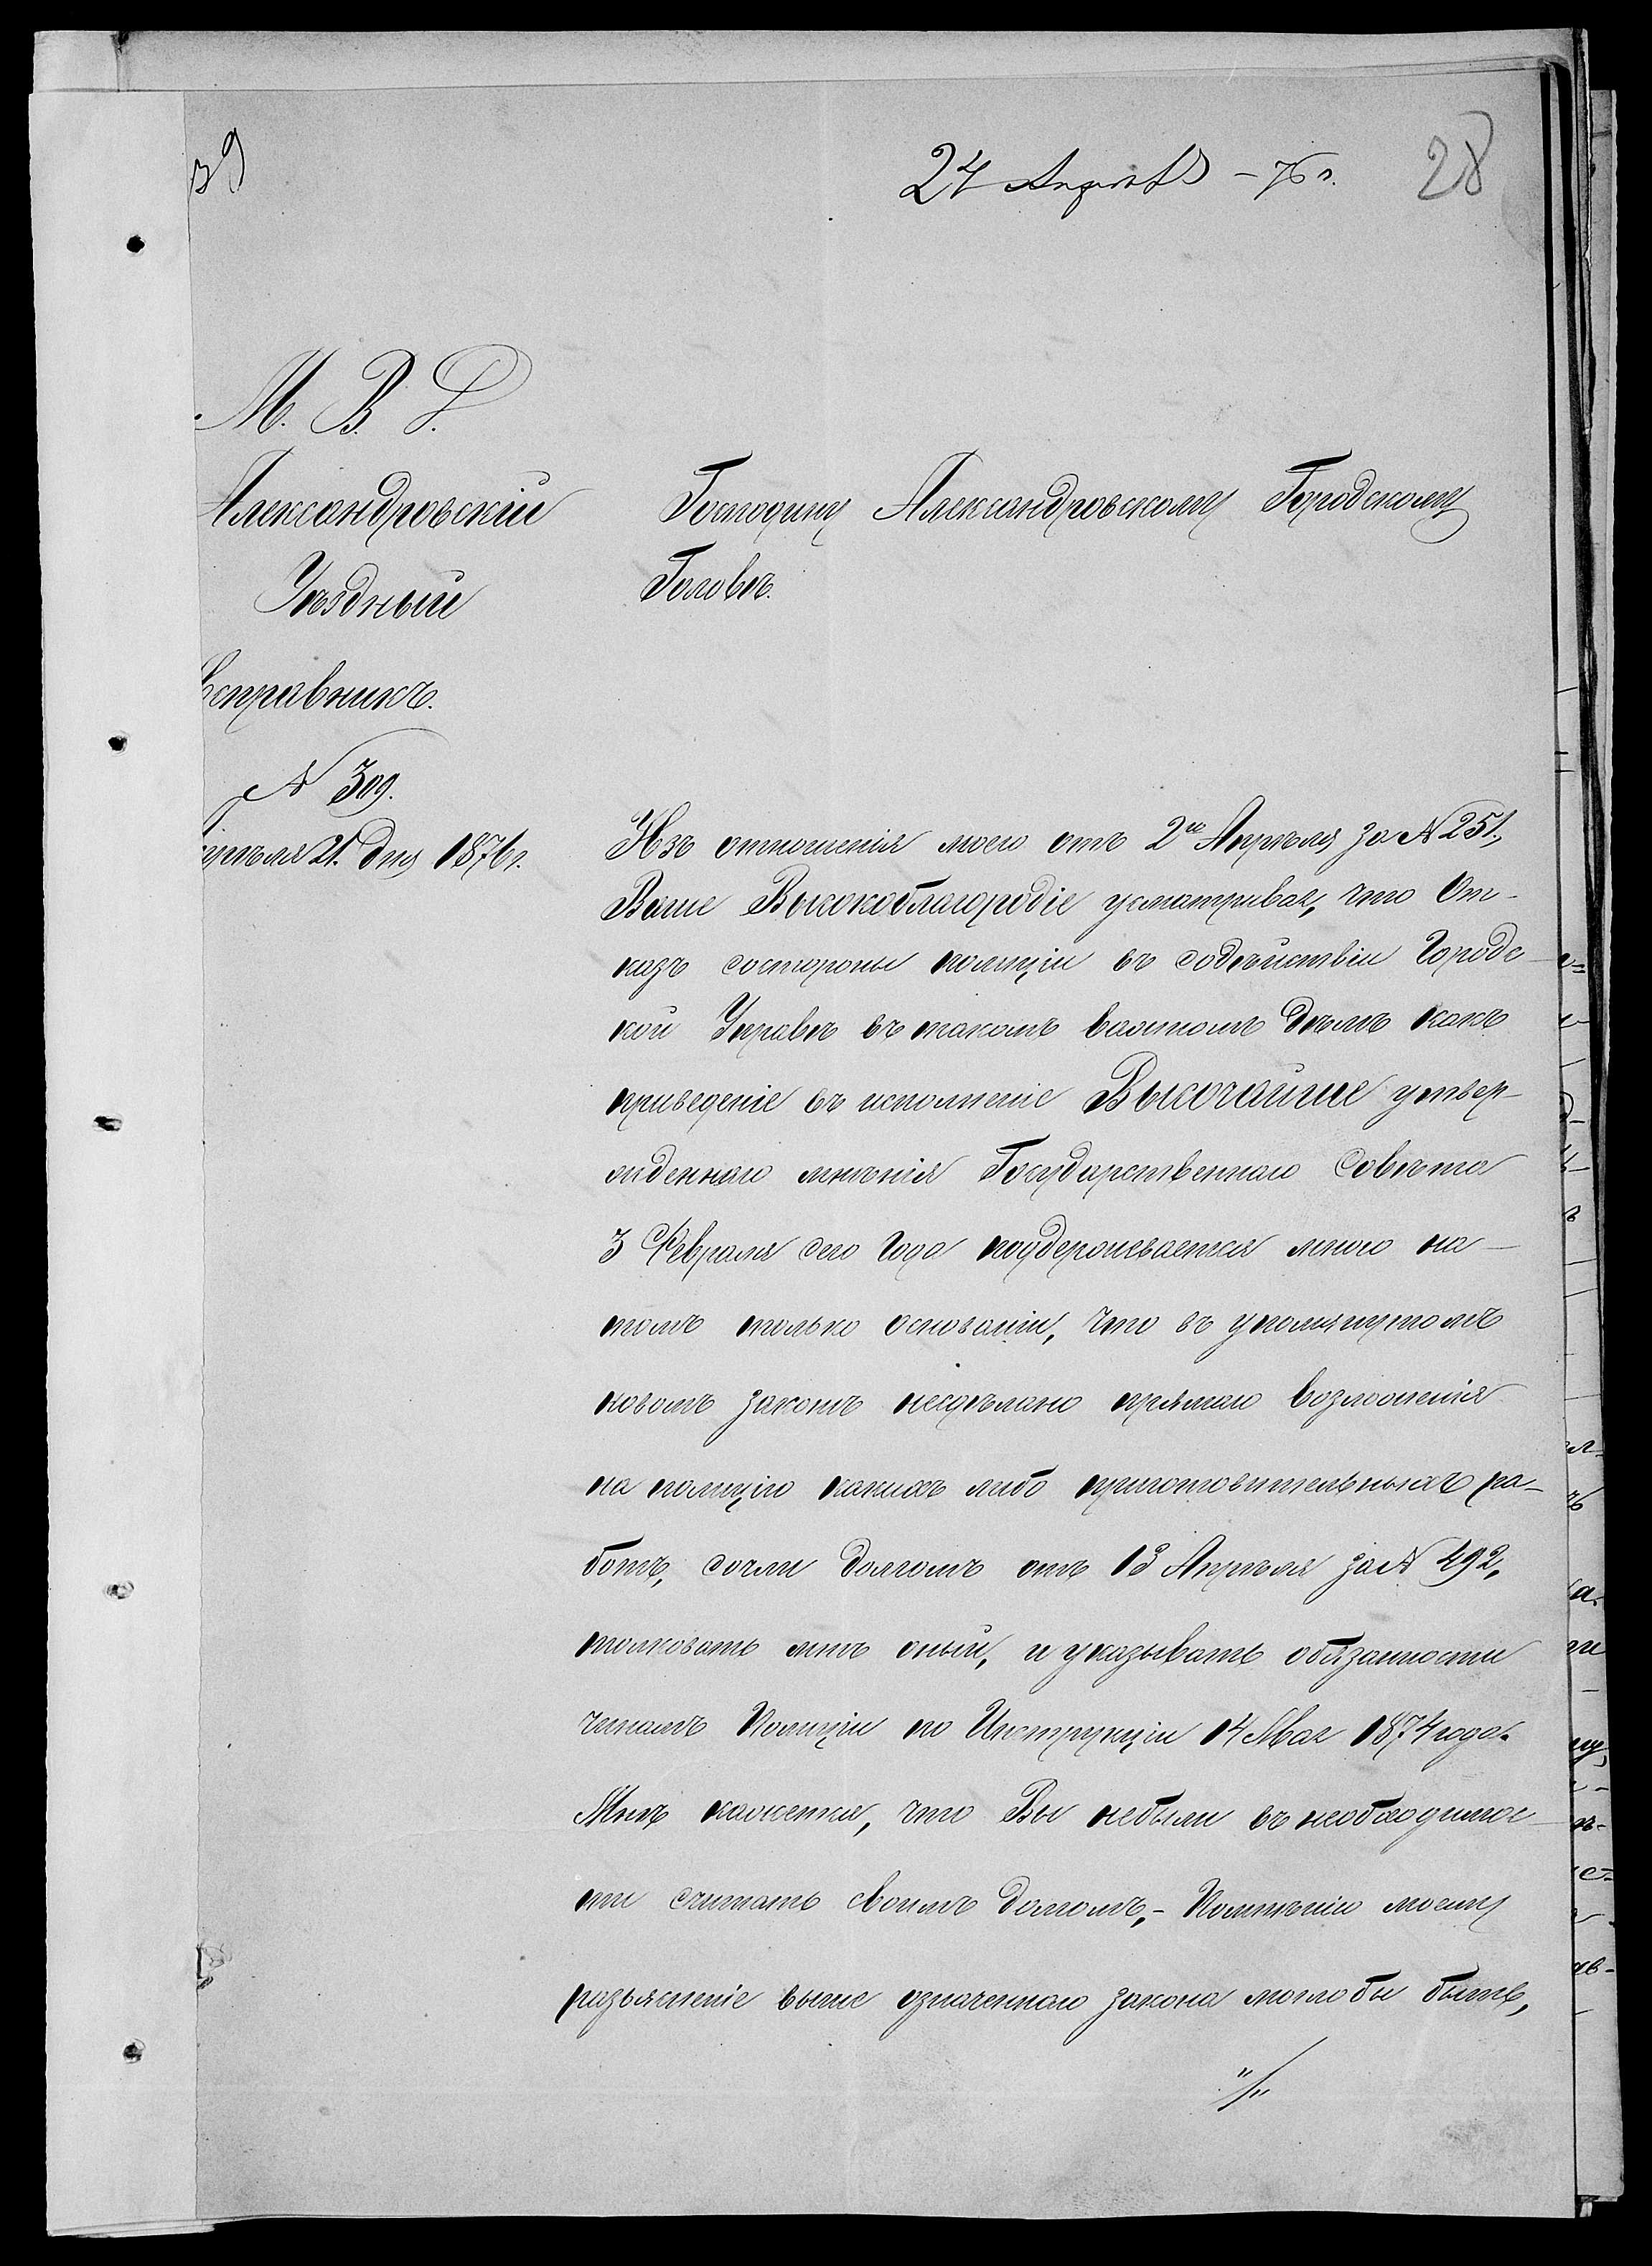 39
24 Апрѣля – 76 г.
28
М. В. Д.
Александровскій
Уѣздный
Исправникъ.
N 309.
Апрѣля 21. дня 1876 г.
Господину Александровскому Городскому
Головѣ.
Изъ отношенія моего отъ 2го Апрѣля, за N 251,
Ваше Высокоблагородіе усматривая, что От-
казъ состороны полиціи въ содѣйствіи Городс-
кой Управѣ въ такомъ важномъ дѣлѣ какъ
приведеніе въ исполненіе Высочайше утвер-
жденнаго мнѣнія Государственнаго Совѣта
3 Февраля сего Года поддерживается мною на-
томъ только основаніи, что въ упомянутомъ
новомъ законѣ несдѣлано прямаго возложенія
на полицію какихъ либо приготовительныхъ ра-
ботъ, сочли долгомъ отъ 13 Апрѣля за N 492,
толковать мнѣ оный, и указывать обязанности
чинамъ Полиціи по Инструкціи 14 Мая 1874 года.
Мнѣ кажется, что Вы небыли въ необходимос-
ти считать своимъ долгомъ,- Помнѣнію моему
разъясненіе выше означеннаго закона моглобы быть,
"/"